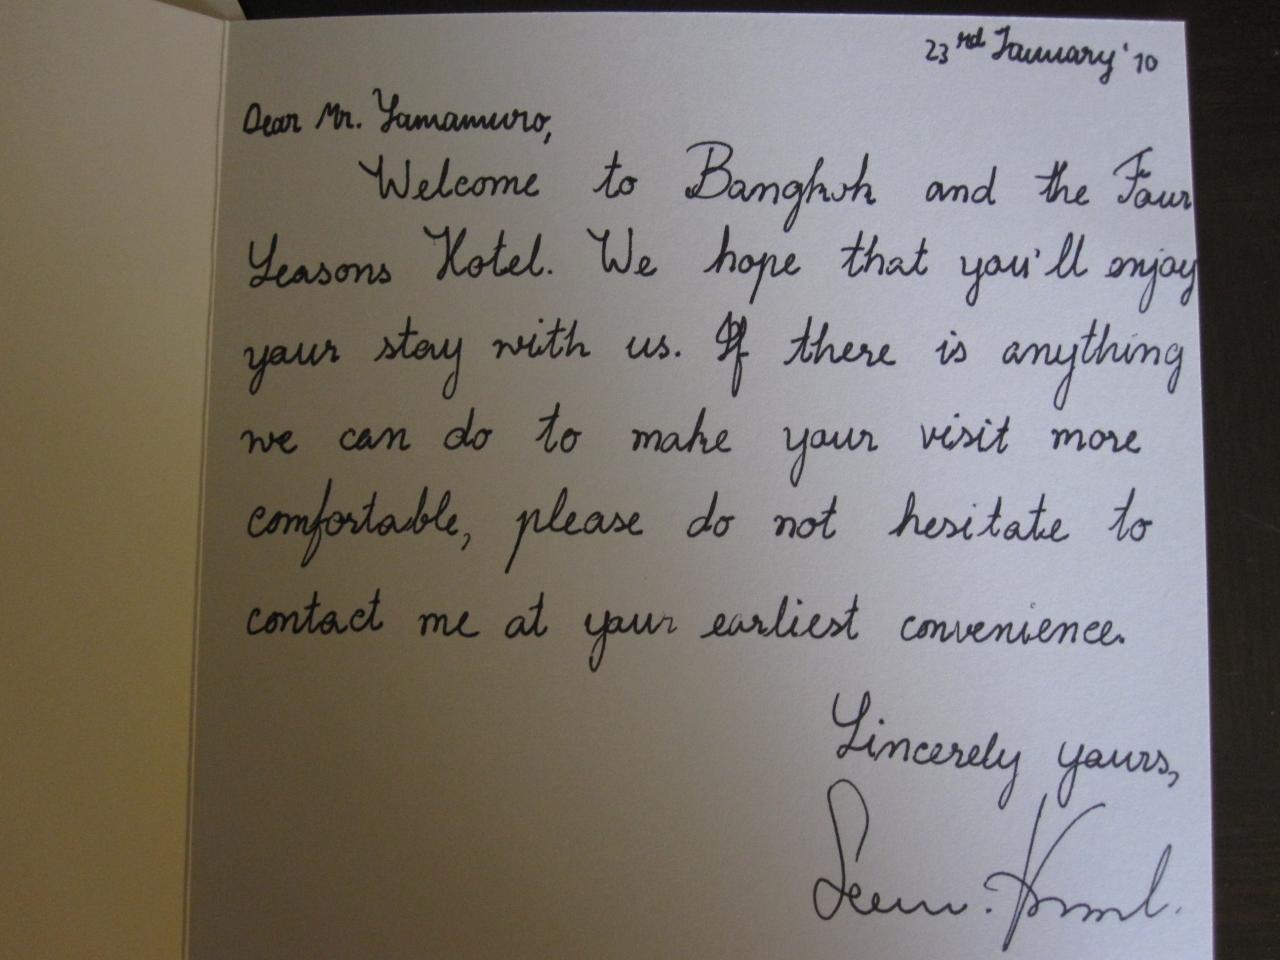 23rd January '10
Dear Mr. Yamamuro,
Welcome to Bangkok and the Four
Seasons Hotel. We hope that you'll enjoy
your stay with us. If there is anything
we can do to make your visit more
comfortable, please do not hesitate to
contact me at your earliest convenience.
Sincerely yours,